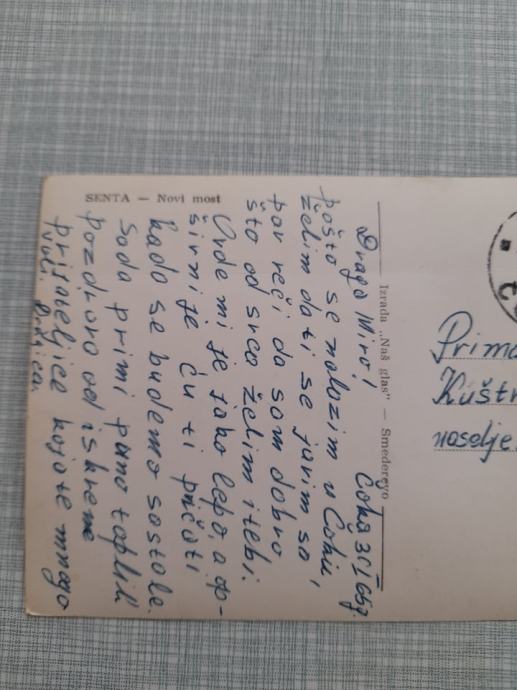 SENTA — Novi most
Čoka 31 I 65g.
Draga Miro!
pošto se nalazim u Čoki,
želim da ti se javim sa
par reči da sam dobro
što od srca želim i tebi.
Ovde mi je jako lepo, a op-
širnije ću ti pričati
kada se budemo sastale.
Sada primi puno toplih
pozdrava od iskrene
prijateljice koja te mnogo
voli
Izrada „Naš glas" — Smederevo
Prima
Kuštr
naselje